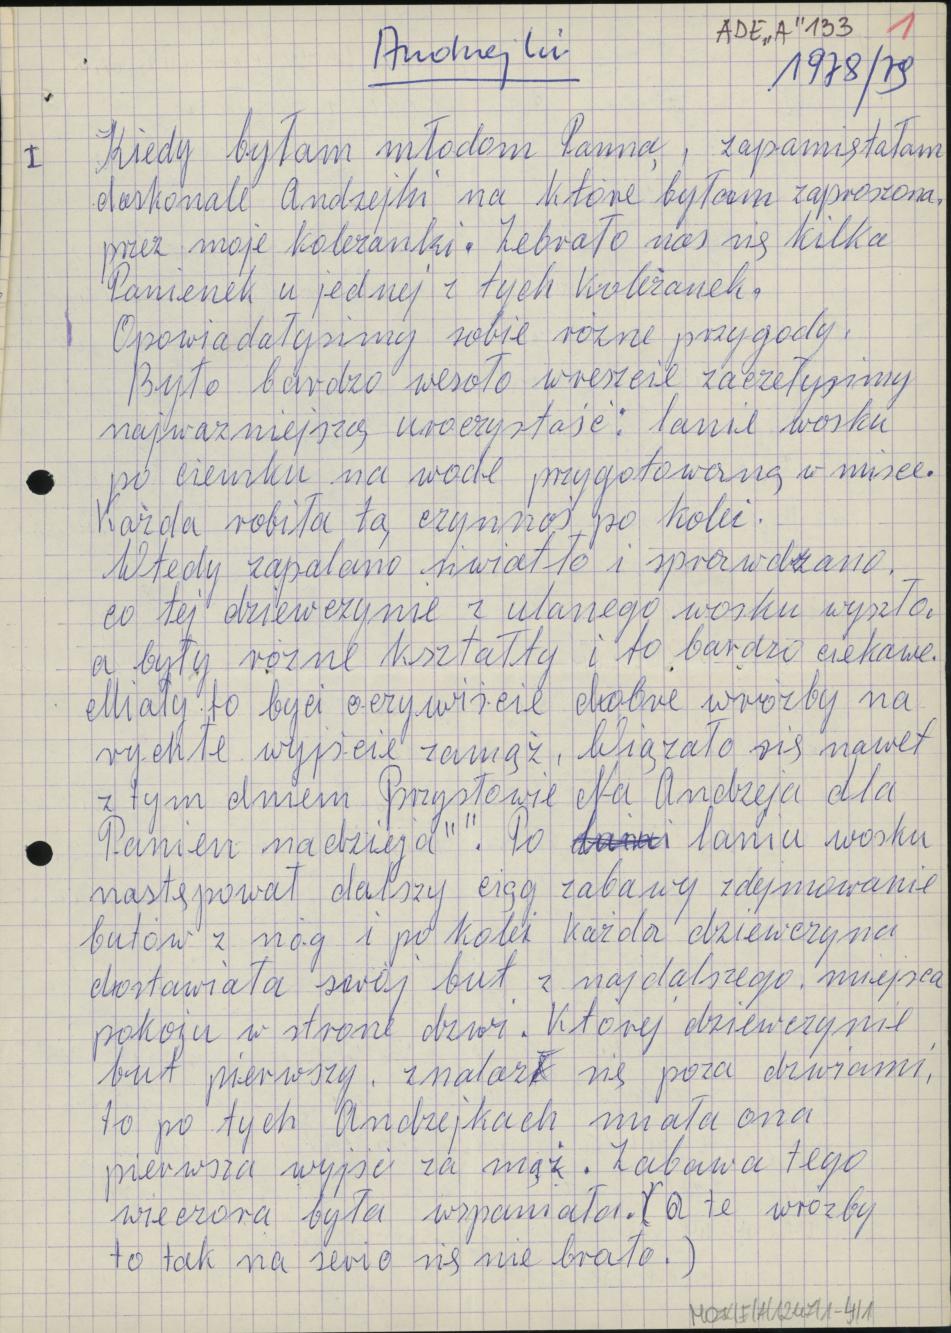 ADE „A" 133 1
Andrzejki
1978/79
I Kiedy byłam młodom Panną, zapamiętałam
doskonale Andzejki na które byłam zaproszona,
przez moje koleżanki. Zebrało nas się kilka
Panienek u jednej z tych koleżanek.
Opowiadałyśmy sobie różne przygody.
Było bardzo wesoło wreszcie zaczełyśmy
najważniejszą uroczystość: lanie wosku
po ciemku na wode przygotowaną w misce.
Każda robiła tą czynnoś po kolei.
Wtedy zapalano światło i sprawdzano,
co tej dziewczynie z ulanego wosku wyszło,
a były rózne kształty i to bardzo ciekawe.
Miały to być oczywiście dobre wróżby na
rychłe wyjście zamąż. Wiązało się nawet
z tym dniem Przysłowie Na Andzeja dla
Panien nadzieja"". Po laniu wosku
następował dalszy ciąg zabawy zdejmowanie
butów z nóg i po kolei każda dziewczyna
dostawiała swój but z najdalszego miejsca
pokoju w strone dzwi. Której dziewczynie
but pierwszy znalazł się poza dzwiami,
to po tych Andzejkach miała ona
pierwsza wyjść za mąż. Zabawa tego
wieczora była wspaniała. (a te wróżby
to tak na serio się nie brało.)